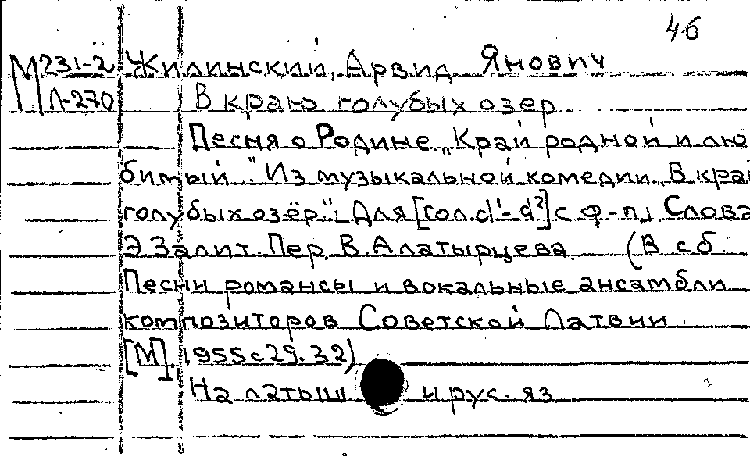 46
М231-2 Жилинский, Арвид Янович
Л-270 В краю голубых озер
Песня о Родине „Край родной и лю
бимый". Из музыкальной комедии „В краю
голубых озёр". Для [гол. d¹-d²] с ф-п. Слова
Э. Залит. Пер. В. Алатырцева (В сб
Песни романсы и вокальные ансамбли
композиторов Советской Латвии
[М]. 1955 с 29. 32)
На латыш и рус. яз